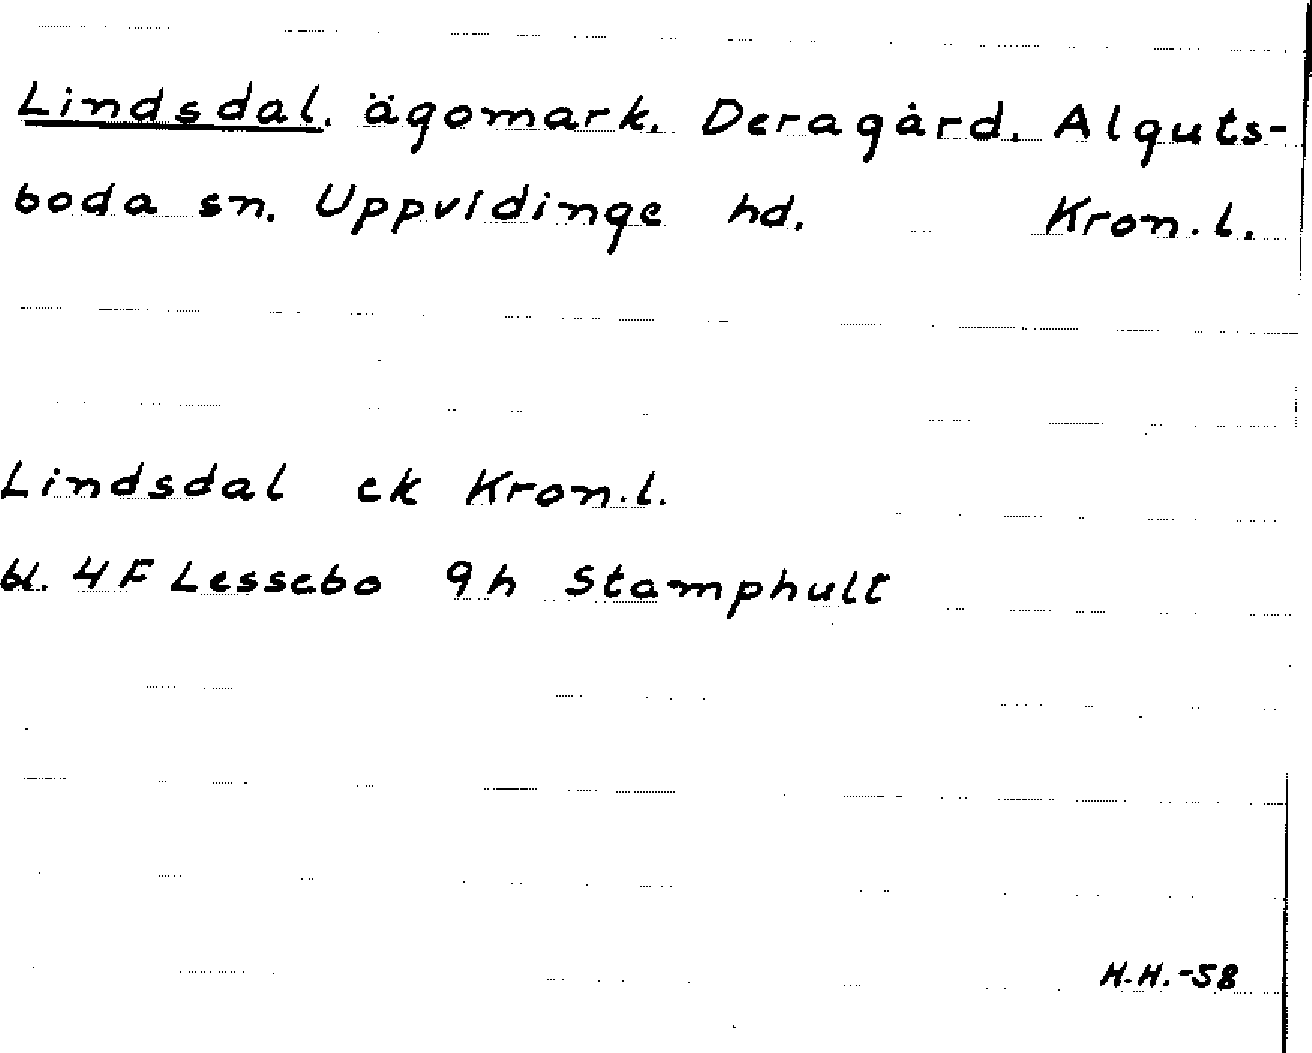 Lindsdal. ägomark. Deragård. Alguts-
boda sn. Uppvidinge hd. Kron.l.
Lindsdal ek Kron.l.
bl. 4F Lessebo 9h Stamphult
H.H.-58